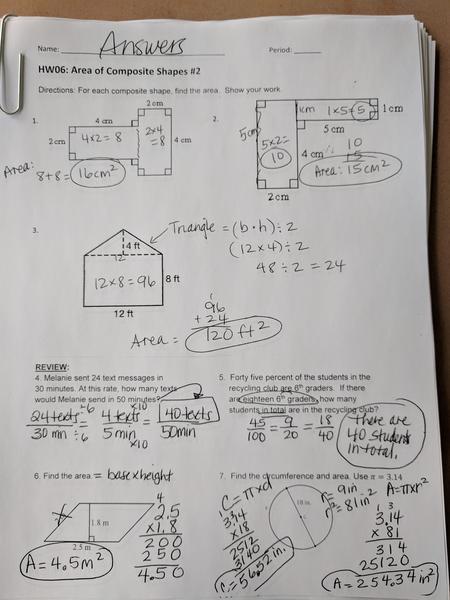 Name: Answers Period:
HW06: Area of Composite Shapes #2
Directions: For each composite shape, find the area. Show your work.
1.
2 cm
4 cm
2 cm
4x2 = 8
2x4
= 8
4 cm
Area:
8+8= 16cm²
2.
1 cm
5 cm
1x5=5
5 cm
5x2=
10
4 cm
2cm
10
+ 5
Area: 15cm²
3.
4 ft
12
12x8=96
8 ft
12 ft
Triangle = (b·h)÷2
(12x4)÷2
48÷2 = 24
1
96
+ 24
Area = 120 ft²
REVIEW:
4. Melanie sent 24 text messages in
30 minutes. At this rate, how many texts
would Melanie send in 50 minutes?
24 texts ÷6 = 4 texts x10 = 40 texts
30 min ÷6 5 min x10 50min
5. Forty five percent of the students in the
recycling club are 6th graders. If there
are eighteen 6th graders, how many
students in total are in the recycling club?
45 = 9 = 18
100 20 40
There are
40 students
in total.
6. Find the area. = base x height
1.8 m
2.5 m
A = 4.5m²
4
2.5
x1.8
200
250
4.50
7. Find the circumference and area. Use π = 3.14
C = πxd
3.14
x18
2512
3140
C=56.52in.
18 in.
r=9in
r²=81in²
A=πxr²
3.14
x 81
314
25120
A=254.34in²